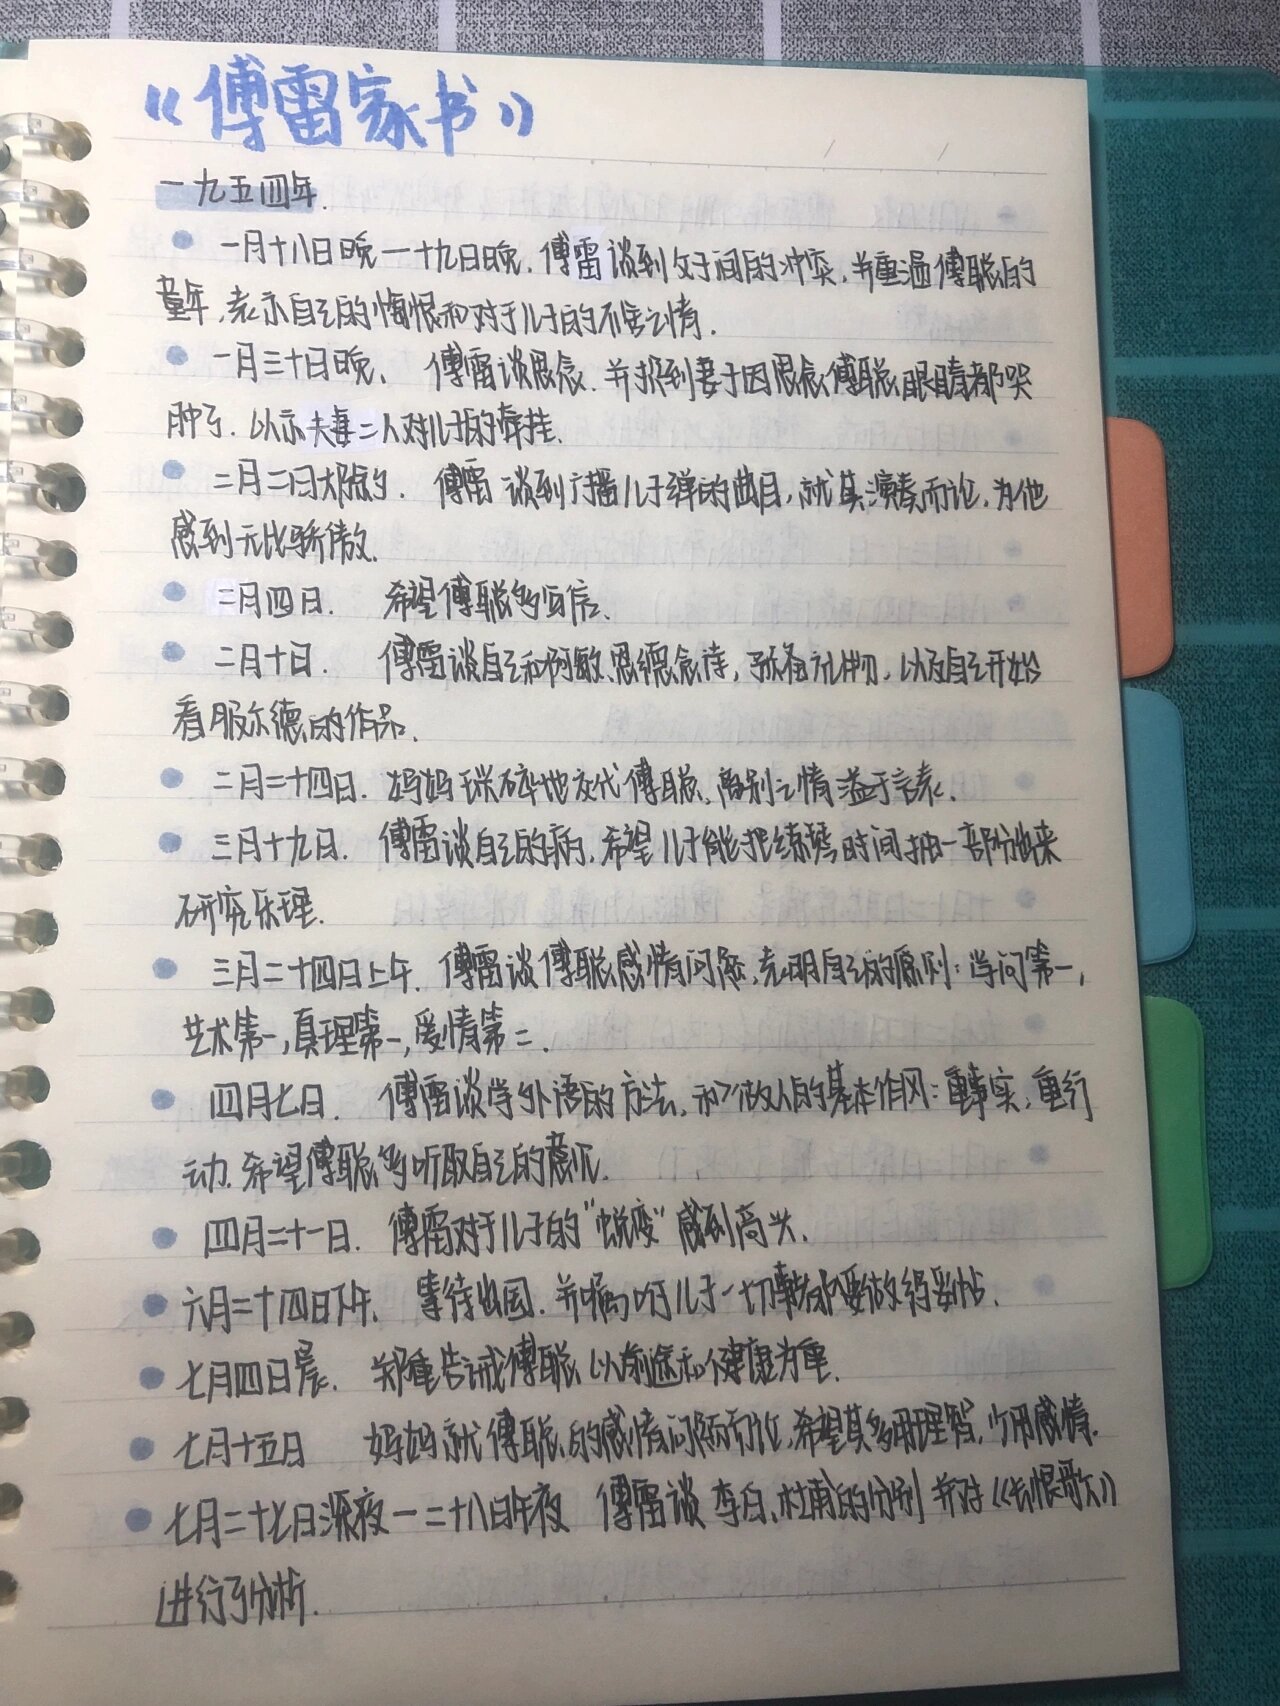 《傅雷家书》
一九五四年.
一月十八日晚一十九日晚. 傅雷谈到父子间的冲突,并重温傅聪的
童年,表示自己的悔恨和对于儿子的不舍之情.
一月三十日晚、 傅雷谈思念.并报到妻子因思念傅聪,眼睛都哭
肿了.以示夫妻二人对儿子的牵挂.
二月二日大除夕. 傅雷 谈到广播儿子弹的曲目,就其演奏而论,为他
感到无比骄傲.
二月四日. 希望傅聪多写信.
二月十日. 傅雷谈自己和阿敏、恩德念诗,预备礼物,以及自己开始
看服尔德的作品.
二月二十四日. 妈妈琐碎地交代傅聪、离别之情溢于言表.
三月十九日. 傅雷谈自己的病.希望儿子能把练琴时间抽一部分出来
研究乐理.
三月二十四日上午. 傅雷谈傅聪感情问题,克明自己的原则:学问第一,
艺术第一,真理第一,爱情第二.
四月七日. 傅雷谈学外语的方法,和做人的基本作风:重事实,重行
动.希望傅聪多听取自己的意见.
四月二十一日. 傅雷对于儿子的"蜕变"感到高兴.
六月二十四日下午. 等待出国.并嘱咐儿子一切事都要做得妥帖.
七月四日晨. 郑重告诫傅聪以前途和健康为重.
七月十五日 妈妈就傅聪的感情问题而论,希望其多用理智,少用感情.
七月二十七日深夜一二十八日午夜 傅雷谈李白、杜甫的分别并对《长恨歌》
进行了分析.